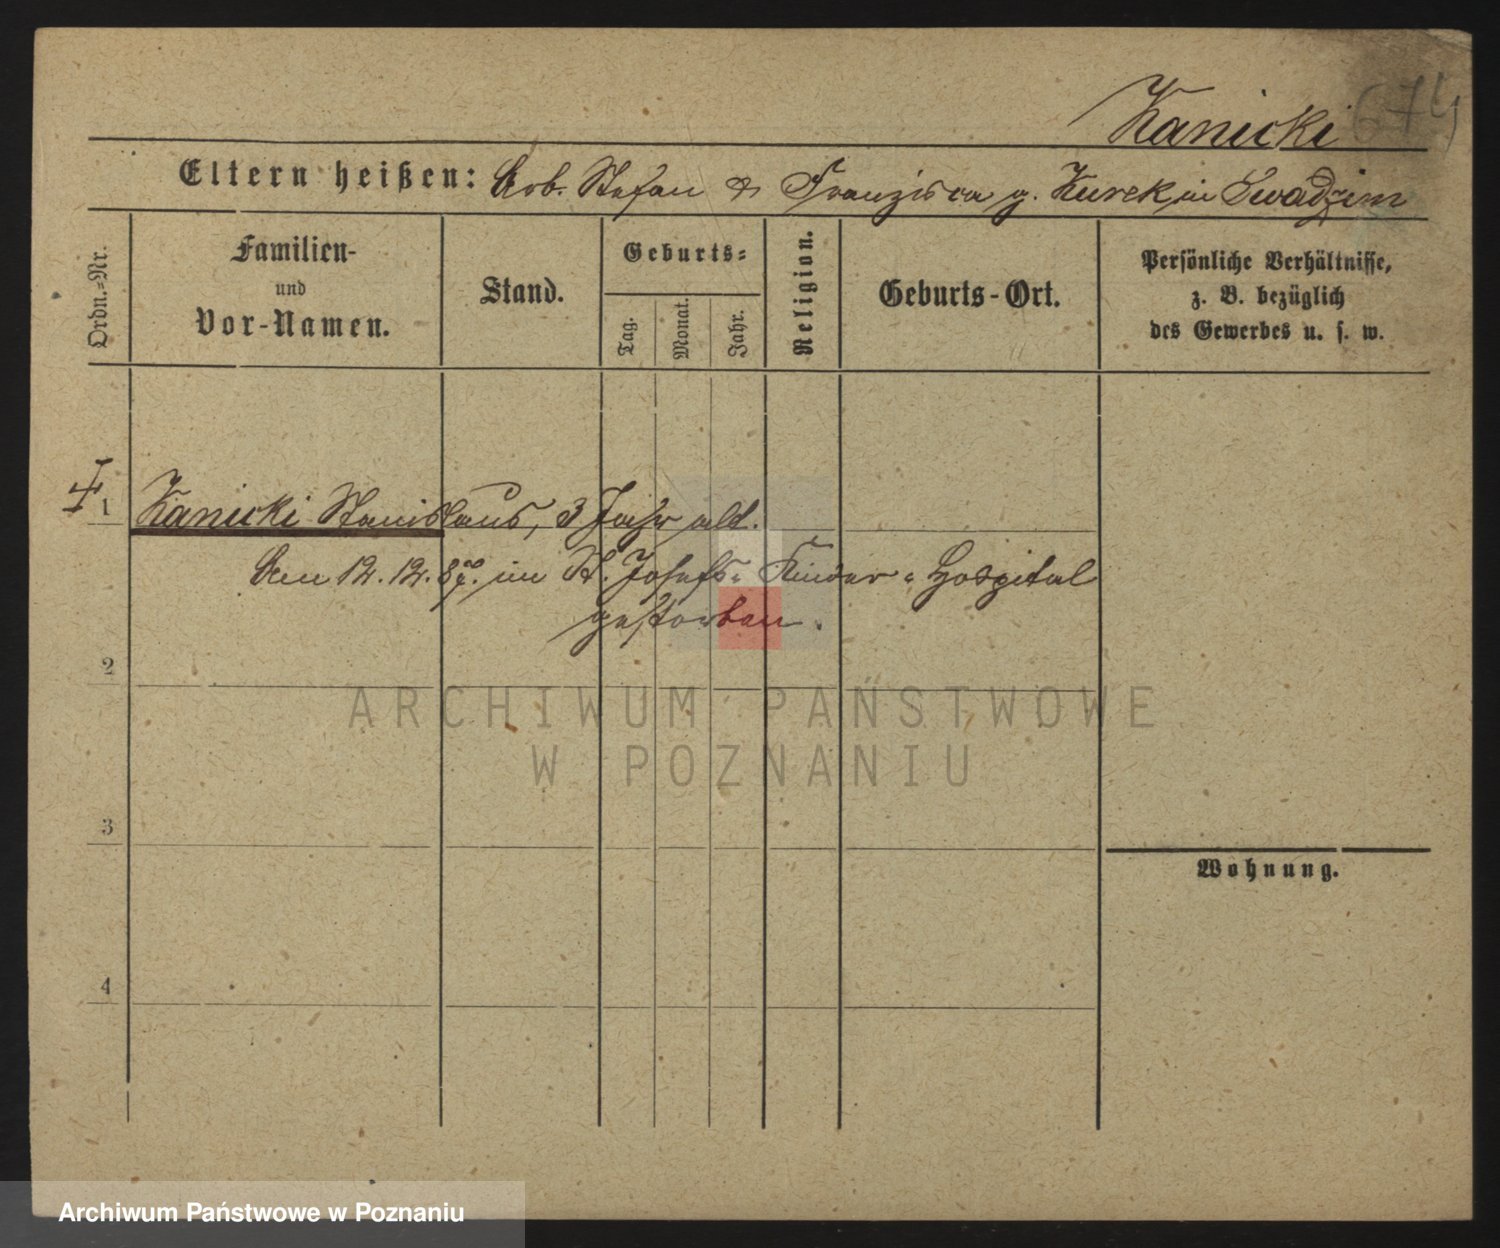 Kanicki 674
Eltern heißen: Arb. Stefan & Franzisca g. Kurek in Swadzim
Ordn.-Nr.
Familien-
und
Vor-Namen.
Stand.
Geburts-
Tag.
Monat.
Jahr.
Religion.
Geburts-Ort.
Persönliche Verhältnisse,
z. B. bezüglich
des Gewerbes u. s. w.
1 Kanicki Stanislaus, 3 Jahr alt.
Am 12. 12. im St. Josefs-Kinder-Hospital
gestorben.
2
3
4
Wohnung.
ARCHIWUM PAŃSTWOWE
W POZNANIU
Archiwum Państwowe w Poznaniu